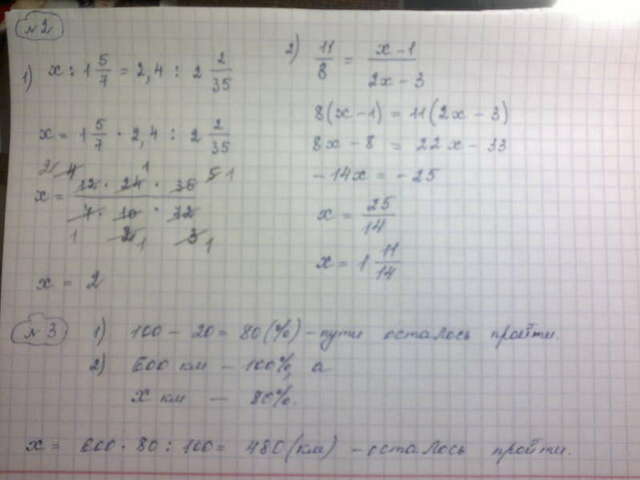 №2
1) x : 1 5/7 = 2,4 : 2 2/35
x = 1 5/7 · 2,4 : 2 2/35
x = 12 · 24 · 35 / 7 · 10 · 72
x = 2
2) 11/8 = x – 1 / 2x – 3
8(x – 1) = 11(2x – 3)
8x – 8 = 22x – 33
– 14x = – 25
x = 25/14
x = 1 11/14
№3 1) 100 – 20 = 80 (%) – пути осталось пройти.
2) 600 км – 100%, а
x км – 80%.
x = 600 · 80 : 100 = 480 (км) – осталось пройти.